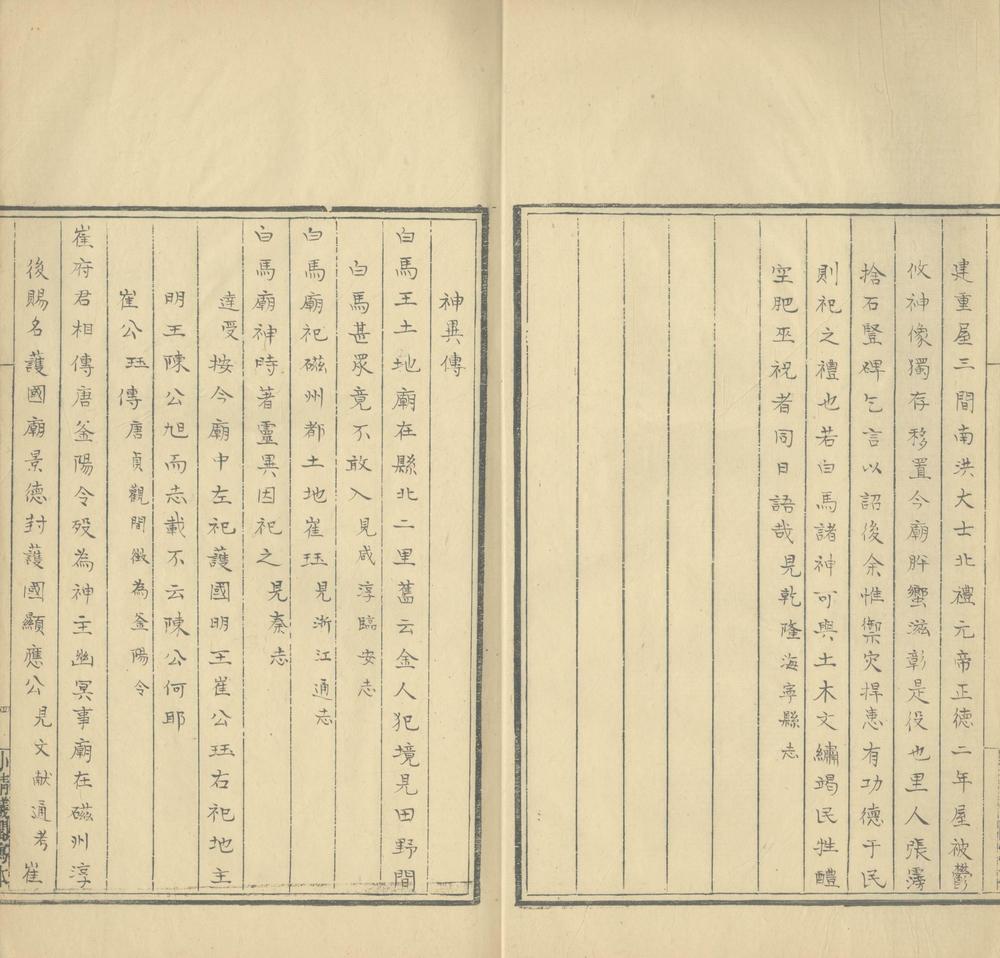 建重屋三間南洪大士北禮元帝正德二年屋被鬱
攸神像獨存移置今廟肸蠁滋彰是役也里人張澤
捨石豎碑乞言以詔後余惟禦灾捍患有功德于民
則祀之禮也若白馬諸神可與土木文繡竭民牲醴
空肥巫祝者同日語哉見乾隆海寧縣志
神異傳
白馬王土地廟在縣北二里舊云金人犯境見田野間
白馬甚眾竟不敢入見咸淳臨安志
白馬廟祀磁州都土地崔珏見浙江通志
白馬廟神時著靈異因祀之見秦志
達受按今廟中左祀護國明王崔公珏右祀地主
明王陳公旭而志載不云陳公何耶
崔公珏傳唐貞觀間徵為釜陽令
崔府君相傳唐釜陽令歿為神主幽冥事廟在磁州淳
後賜名護國廟景德封護國顯應公見文献通考崔
四
小清儀閣寫本